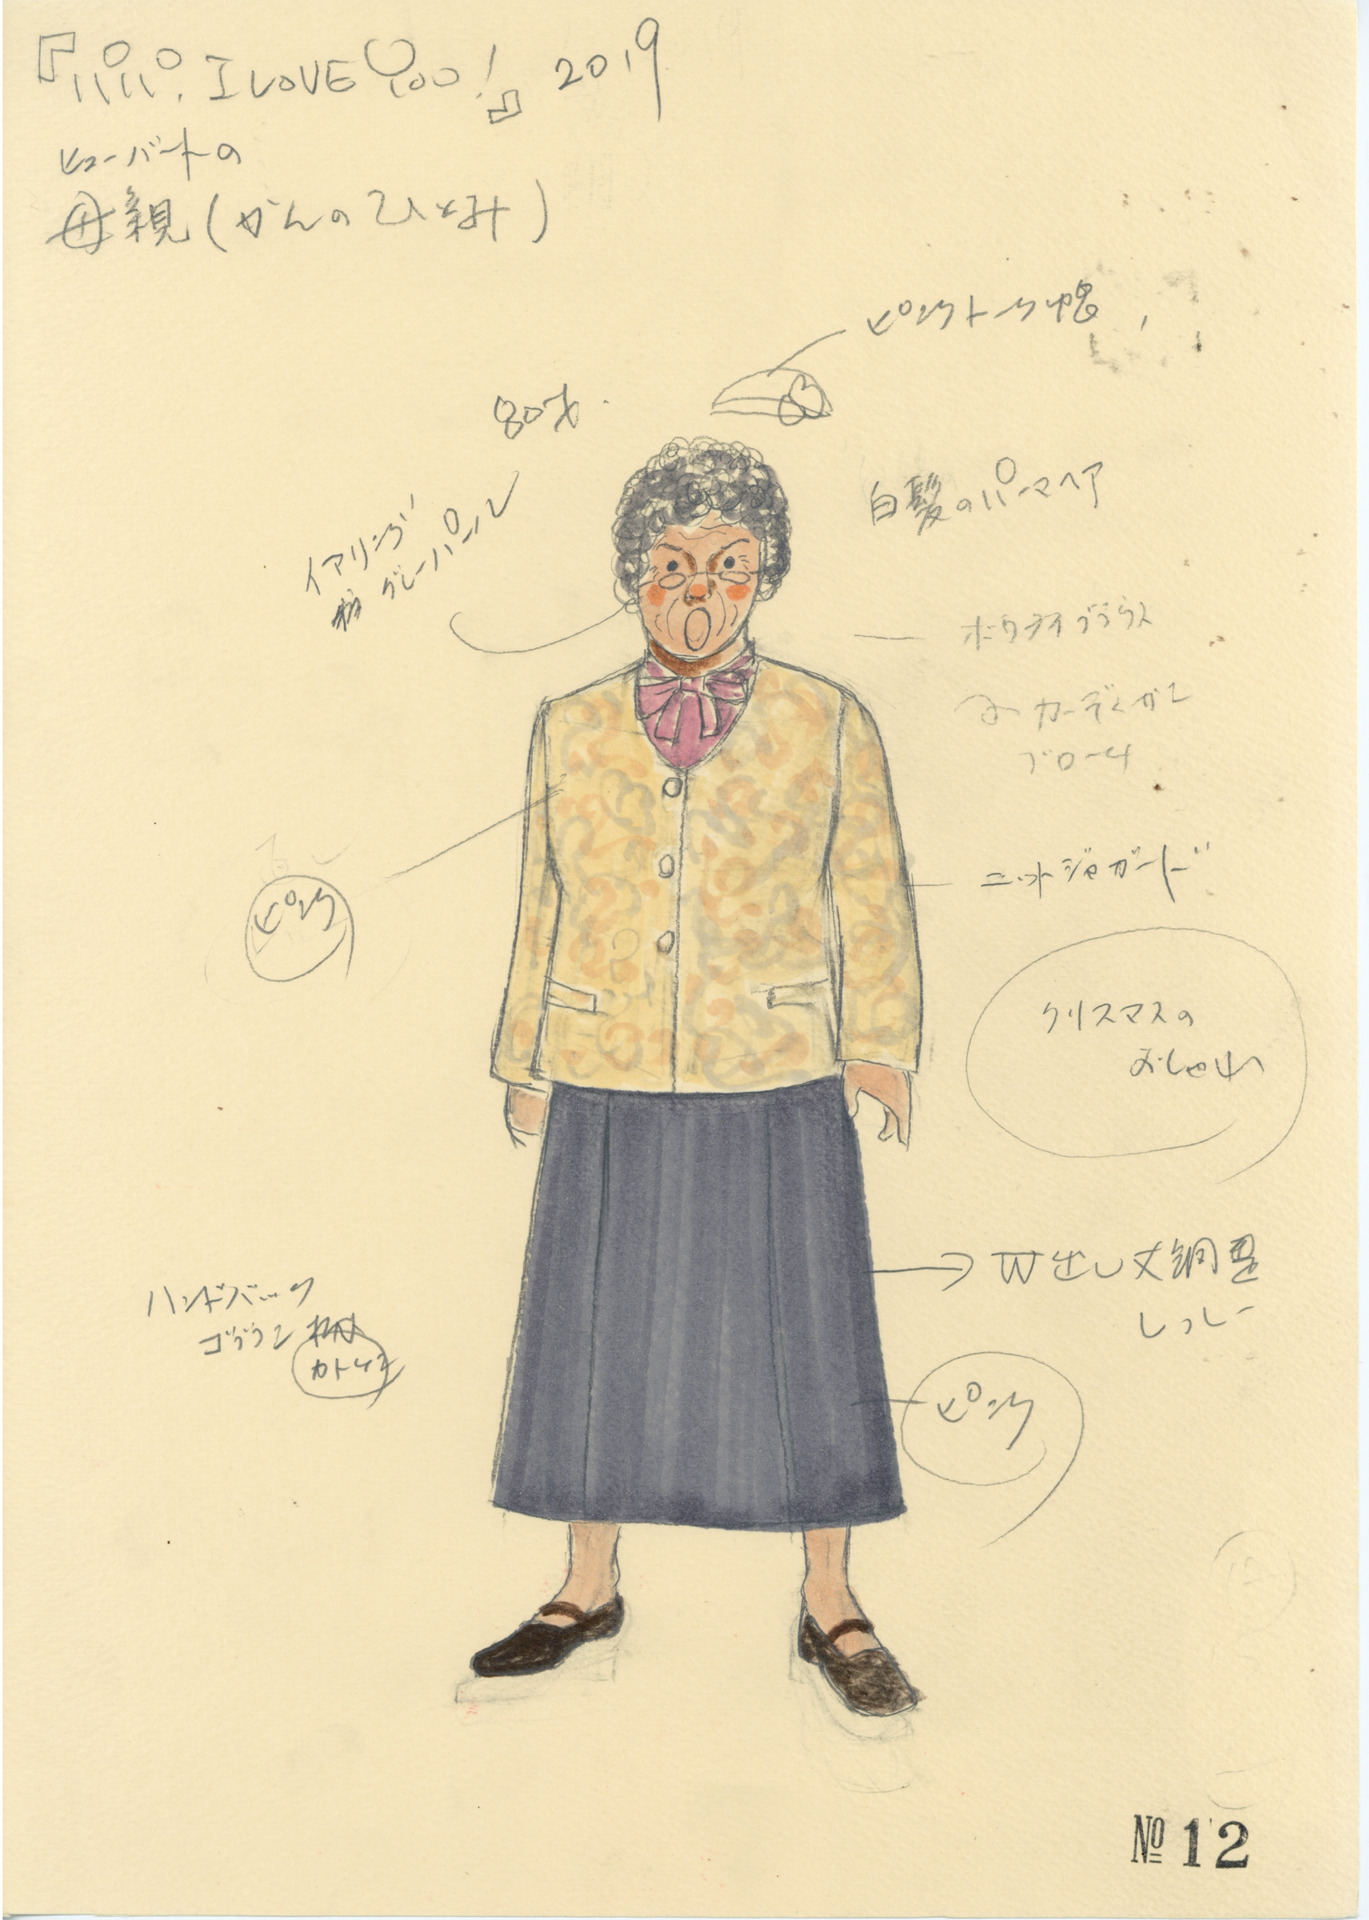 『パパ、I LOVE YOU!』 2019
ヒューバートの
母親(かんのひとみ)
ピンクトーク帽
80才.
白髪のパーマヘア
イアリング
グレーパール
ボウタイブラウス
カーディガン
ブローチ
ピンク
ニットジャガード
クリスマスの
おしゃれ
W出し丈調整
ハンドバック
ゴブラン
ピンク
№12